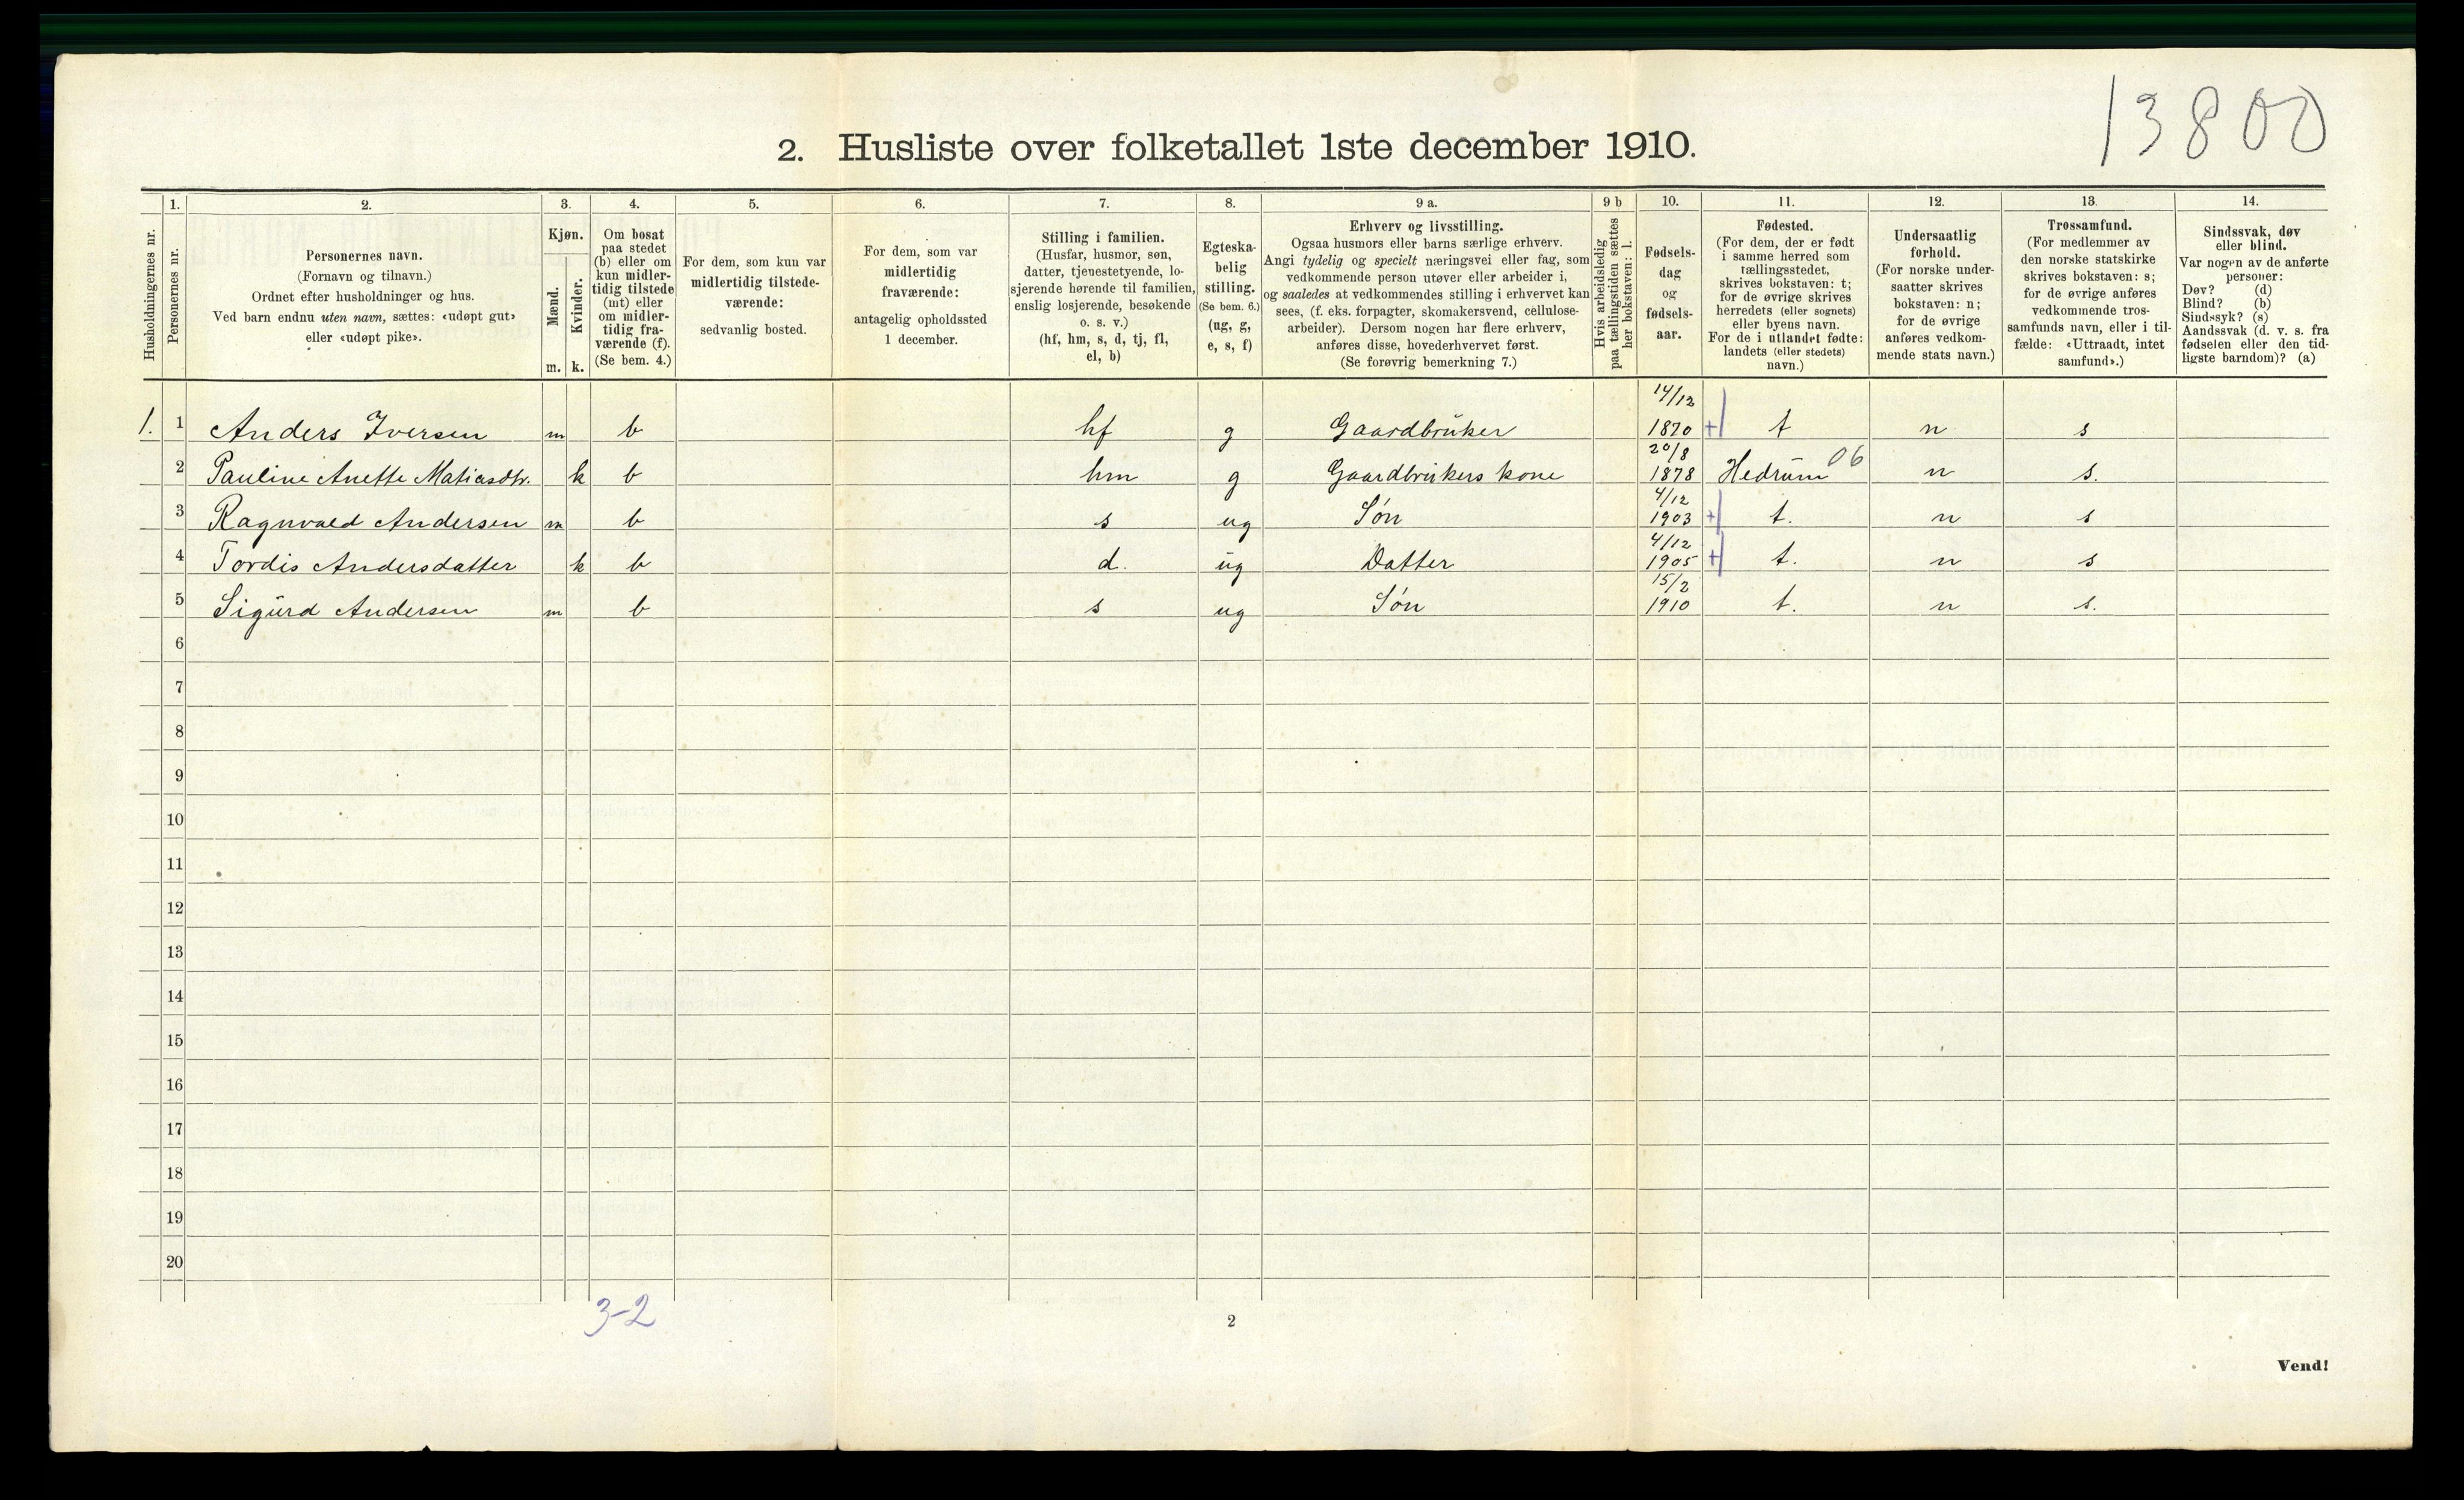 13800
2. Husliste over folketallet 1ste december 1910.
Husholdningernes nr.
1.
Personernes nr.
2.
Personernes navn.
(Fornavn og tilnavn.)
Ordnet efter husholdninger og hus.
Ved barn endnu uten navn, sættes: «udøpt gut»
eller «udøpt pike».
3.
Kjøn.
Mænd.
Kvinder.
m. k.
4.
Om bosat
paa stedet
(b) eller om
kun midler-
tidig tilstede
(mt) eller
om midler-
tidig fra-
værende (f).
(Se bem. 4.)
5.
For dem, som kun var
midlertidig tilstede-
værende:
sedvanlig bosted.
6.
For dem, som var
midlertidig
fraværende:
antagelig opholdssted
1 december.
7.
Stilling i familien.
(Husfar, husmor, søn,
datter, tjenestetyende, lo-
sjerende hørende til familien,
enslig losjerende, besøkende
o. s. v.)
(hf, hm, s, d, tj, fl,
el, b)
8.
Egteska-
belig
stilling.
(Se bem. 6.)
(ug, g,
e, s, f)
9 a.
Erhverv og livsstilling.
Ogsaa husmors eller barns særlige erhverv.
Angi tydelig og specielt næringsvei eller fag, som
vedkommende person utøver eller arbeider i,
og saaledes at vedkommendes stilling i erhvervet kan
sees, (f. eks. forpagter, skomakersvend, cellulose-
arbeider). Dersom nogen har flere erhverv,
anføres disse, hovederhvervet først.
(Se forøvrig bemerkning 7.)
9 b
Hvis arbeidsledig
paa tællingstiden sættes
her bokstaven: l.
10.
Fødsels-
dag
og
fødsels-
aar.
11.
Fødested.
(For dem, der er født
i samme herred som
tællingsstedet,
skrives bokstaven: t;
for de øvrige skrives
herredets (eller sognets)
eller byens navn.
For de i utlandet fødte:
landets (eller stedets)
navn.)
12.
Undersaatlig
forhold.
(For norske under-
saatter skrives
bokstaven: n;
for de øvrige
anføres vedkom-
mende stats navn.)
13.
Trossamfund.
(For medlemmer av
den norske statskirke
skrives bokstaven: s;
for de øvrige anføres
vedkommende tros-
samfunds navn, eller i til-
fælde: «Uttraadt, intet
samfund».)
14.
Sindssvak, døv
eller blind.
Var nogen av de anførte
personer:
Døv? (d)
Blind? (b)
Sindssyk? (s)
Aandssvak (d. v. s. fra
fødselen eller den tid-
ligste barndom)? (a)
1. 1 Anders Iversen m b hf g Gaardbrüker 14/12 1870 + t n s
2 Pauline Anette Matiasdtr. k b hm g Gaardbrükers kone 20/8 1878 Hedrüm 06 n s.
3 Ragnvald Andersen m b s ug Søn 4/12 1903 + t. n s
4 Tordis Andersdatter k b d. üg Datter 4/12 1905 + t. n s
5 Sigürd Andersen m b s ug Søn 15/2 1910 t. n s.
6
7
8
9
10
11
12
13
14
15
16
17
18
19
20
3-2
2
Vend!